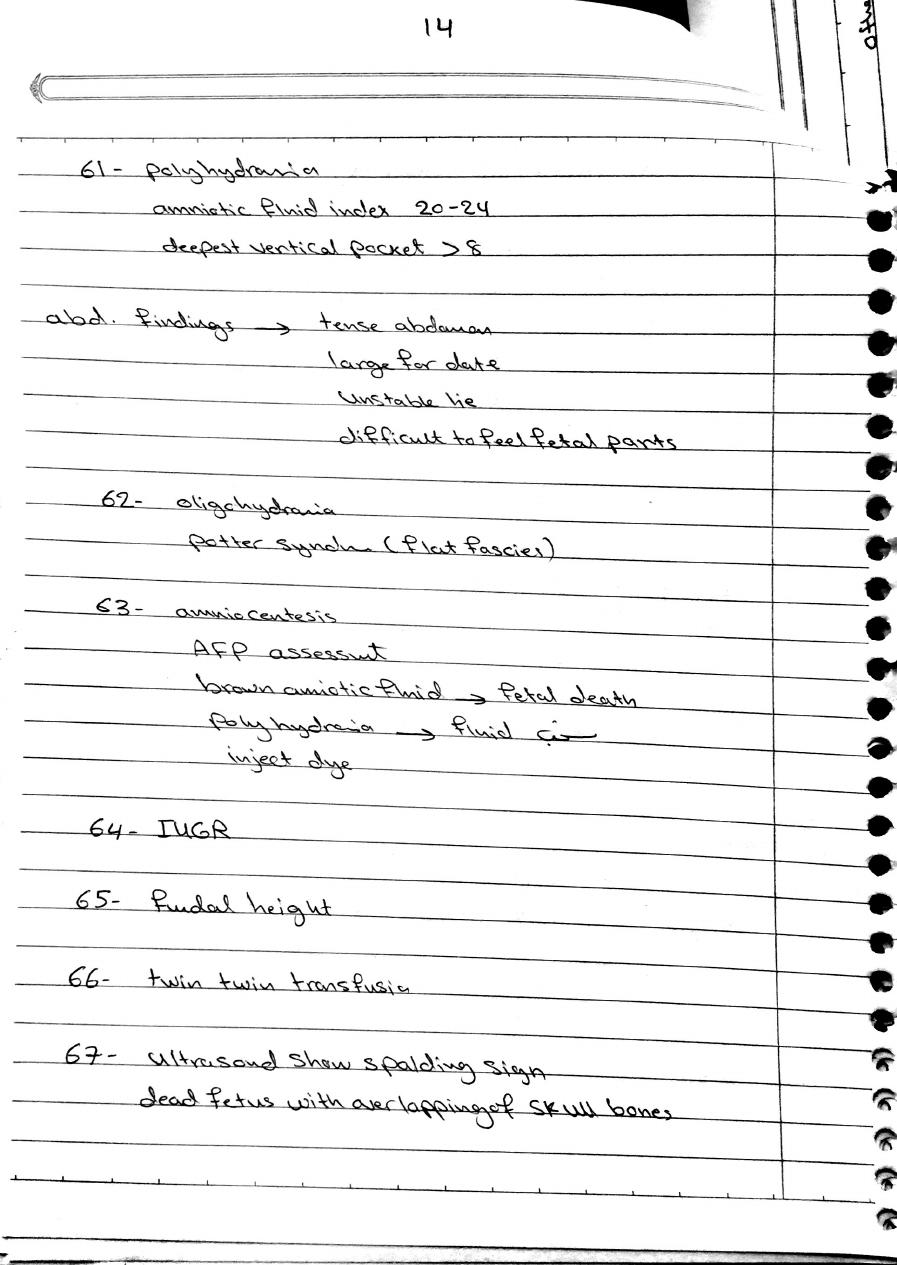 14
61- polyhydramnia
amniotic fluid index 20-24
deepest vertical pocket >8
abd. findings → tense abdomen
large for date
unstable lie
difficult to feel fetal parts
62- oligohydramnia
potter syndr (flat fascies)
63- amniocentesis
AFP assessmt
brown amiotic fluid → fetal death
polyhydramnia → fluid سحب
inject dye
64- IUGR
65- fundal height
66- twin twin transfusion
67- ultrasound show spalding sign
dead fetus with overlapping of skull bones